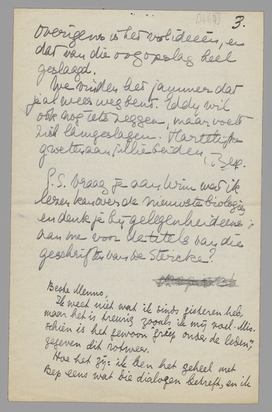 3.
Overigens is het vol ideeën, en
dat van die oogopslag heel
geslaagd.
We vinden het jammer dat
je al weer weg bent. Eddy wil
ook nog iets zeggen, maar voelt
zich lamgeslagen. Hartelijke
groeten aan jullie beiden,
Bep.
P.S. Vraag je aan Wim wat ik
lezen kan over de nieuwste biologie
en denk je bij gelegenheid eens
aan me voor de titels van die
geschriften van de Stercke?
Beste Menno,
Ik weet niet wat ik sinds gisteren heb,
maar het is treurig zooals ik mij voel. Mis-
schien is het gewoon griep onder de leden,
gegeven dit rotweer.
Hoe het zij: ik ben het geheel met
Bep eens wat die dialogen betreft, en ik